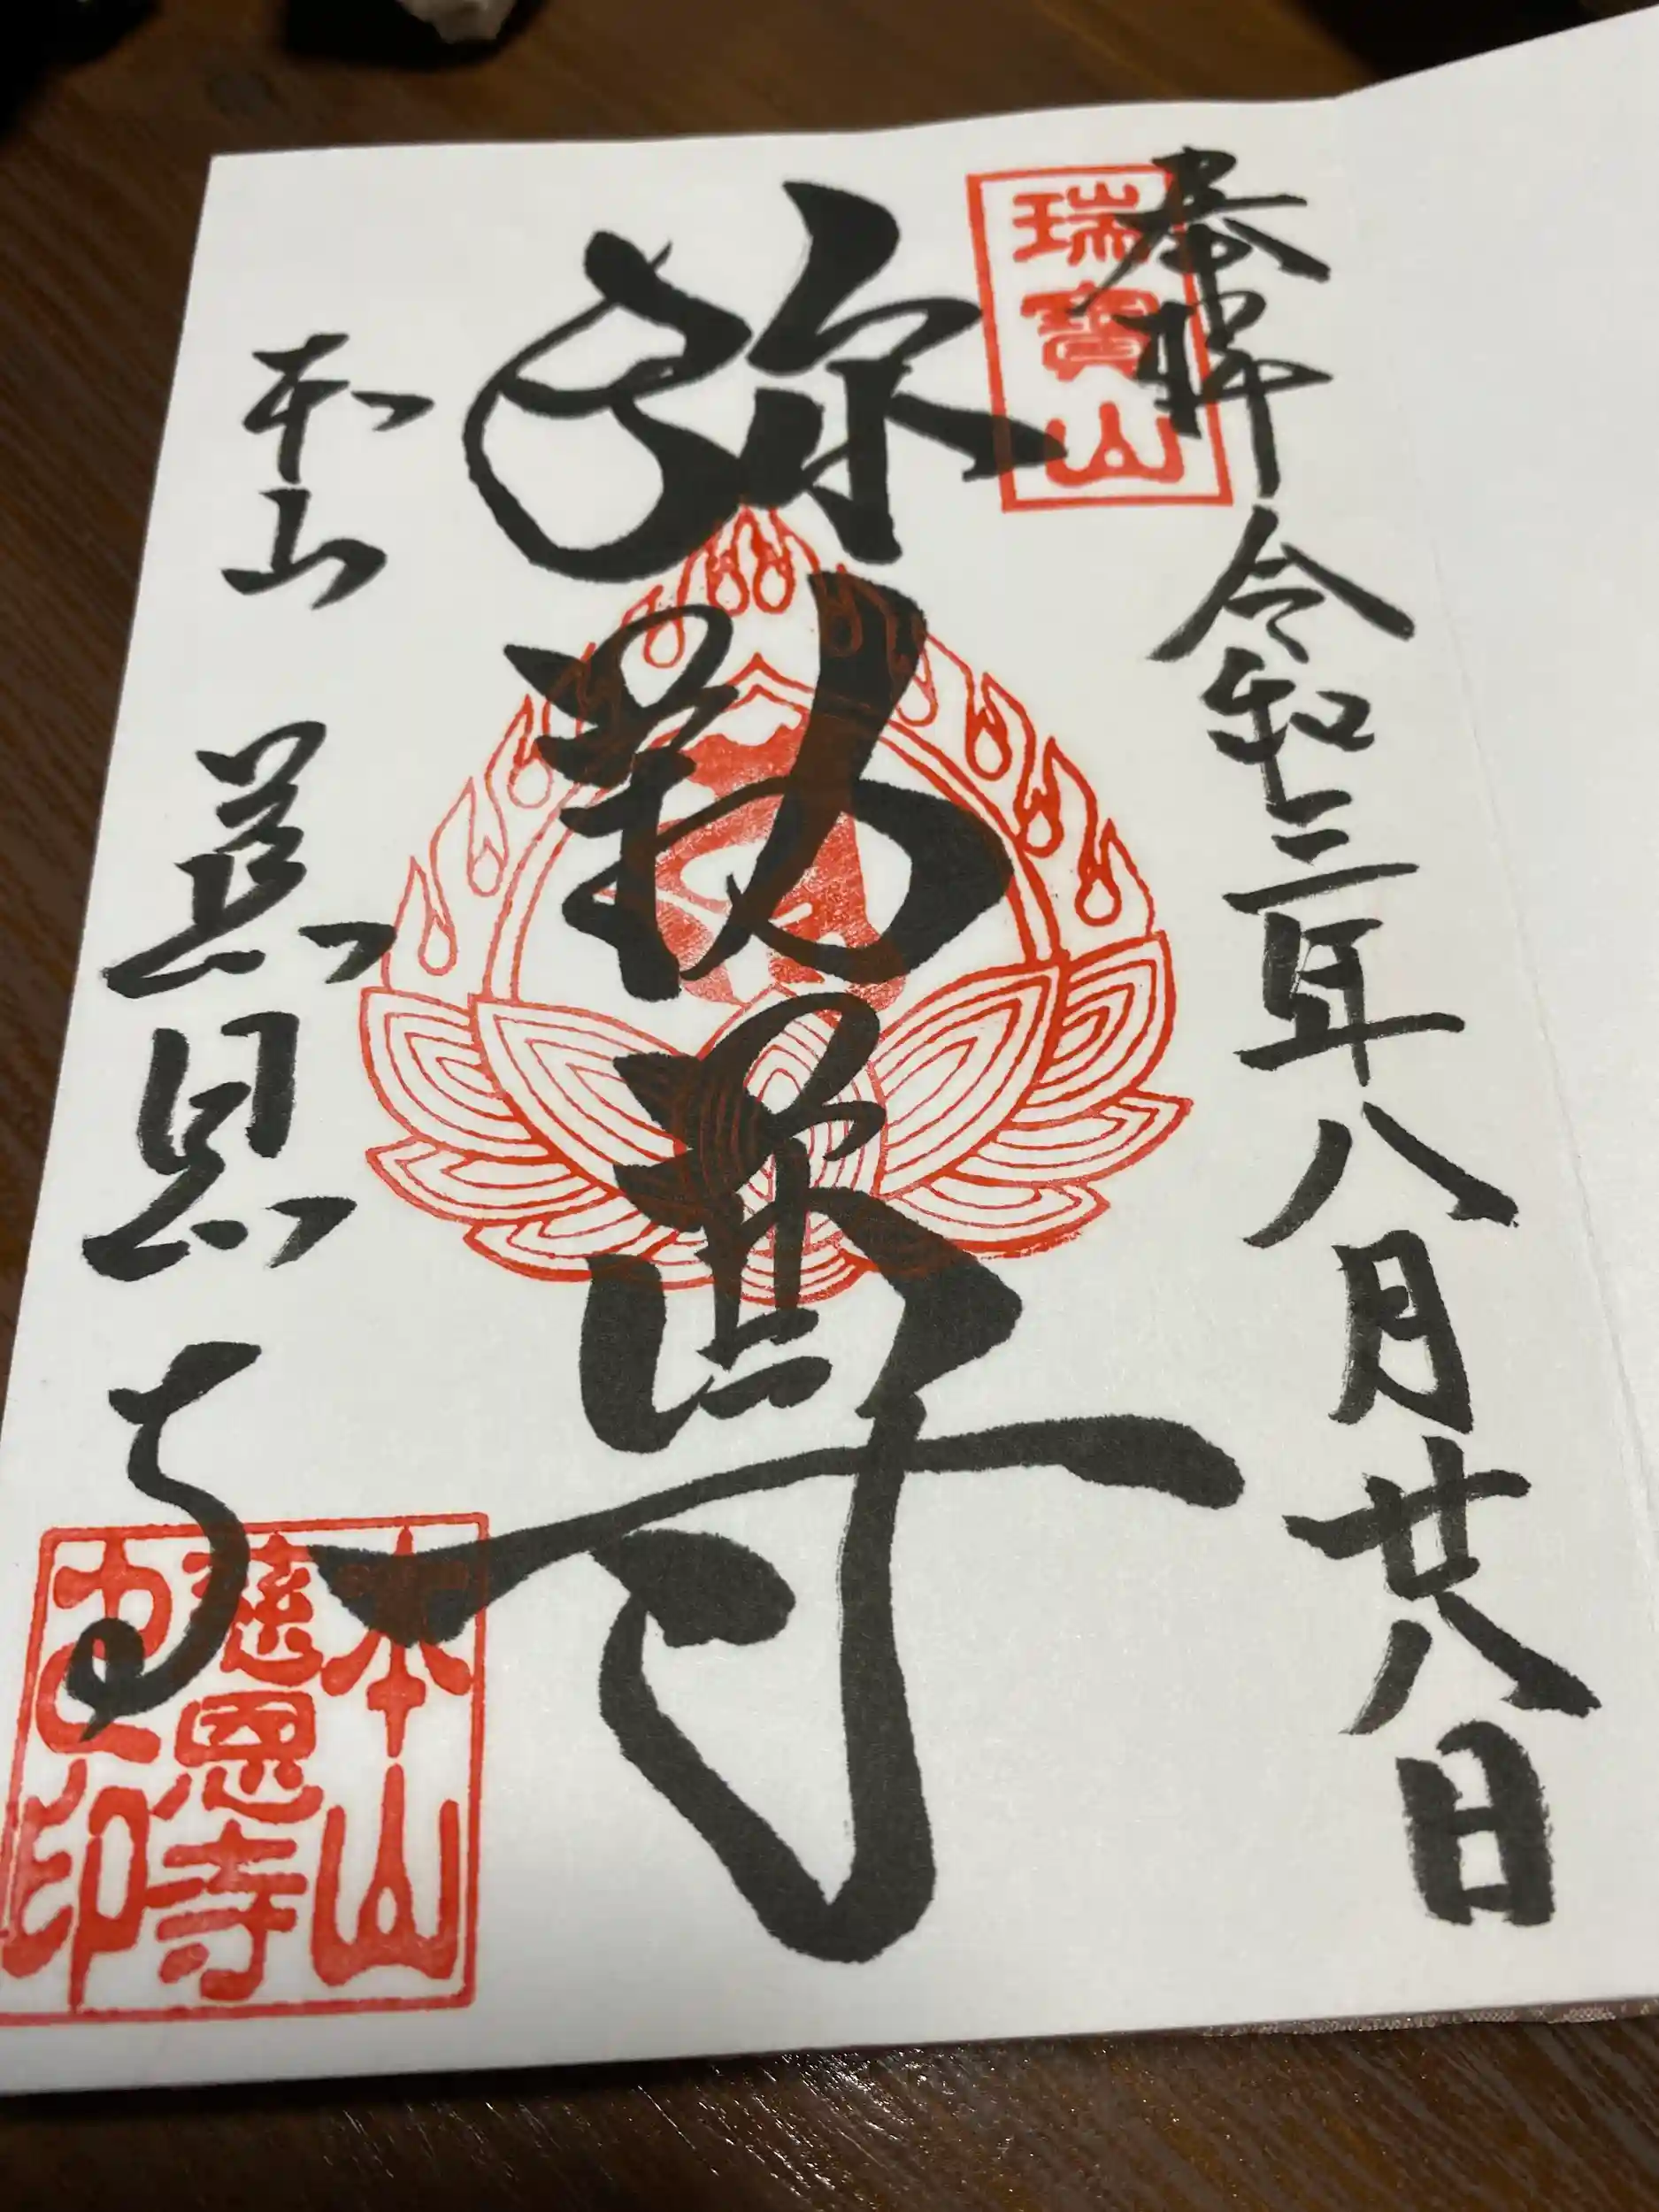 奉拝 令和三年八月廿八日
瑞寳山
弥勒尊
本山 慈恩寺
本山
慈恩寺
之印